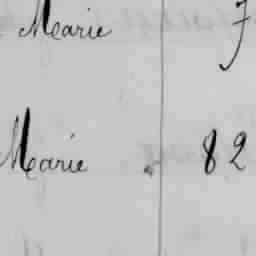 Marie
Marie 82